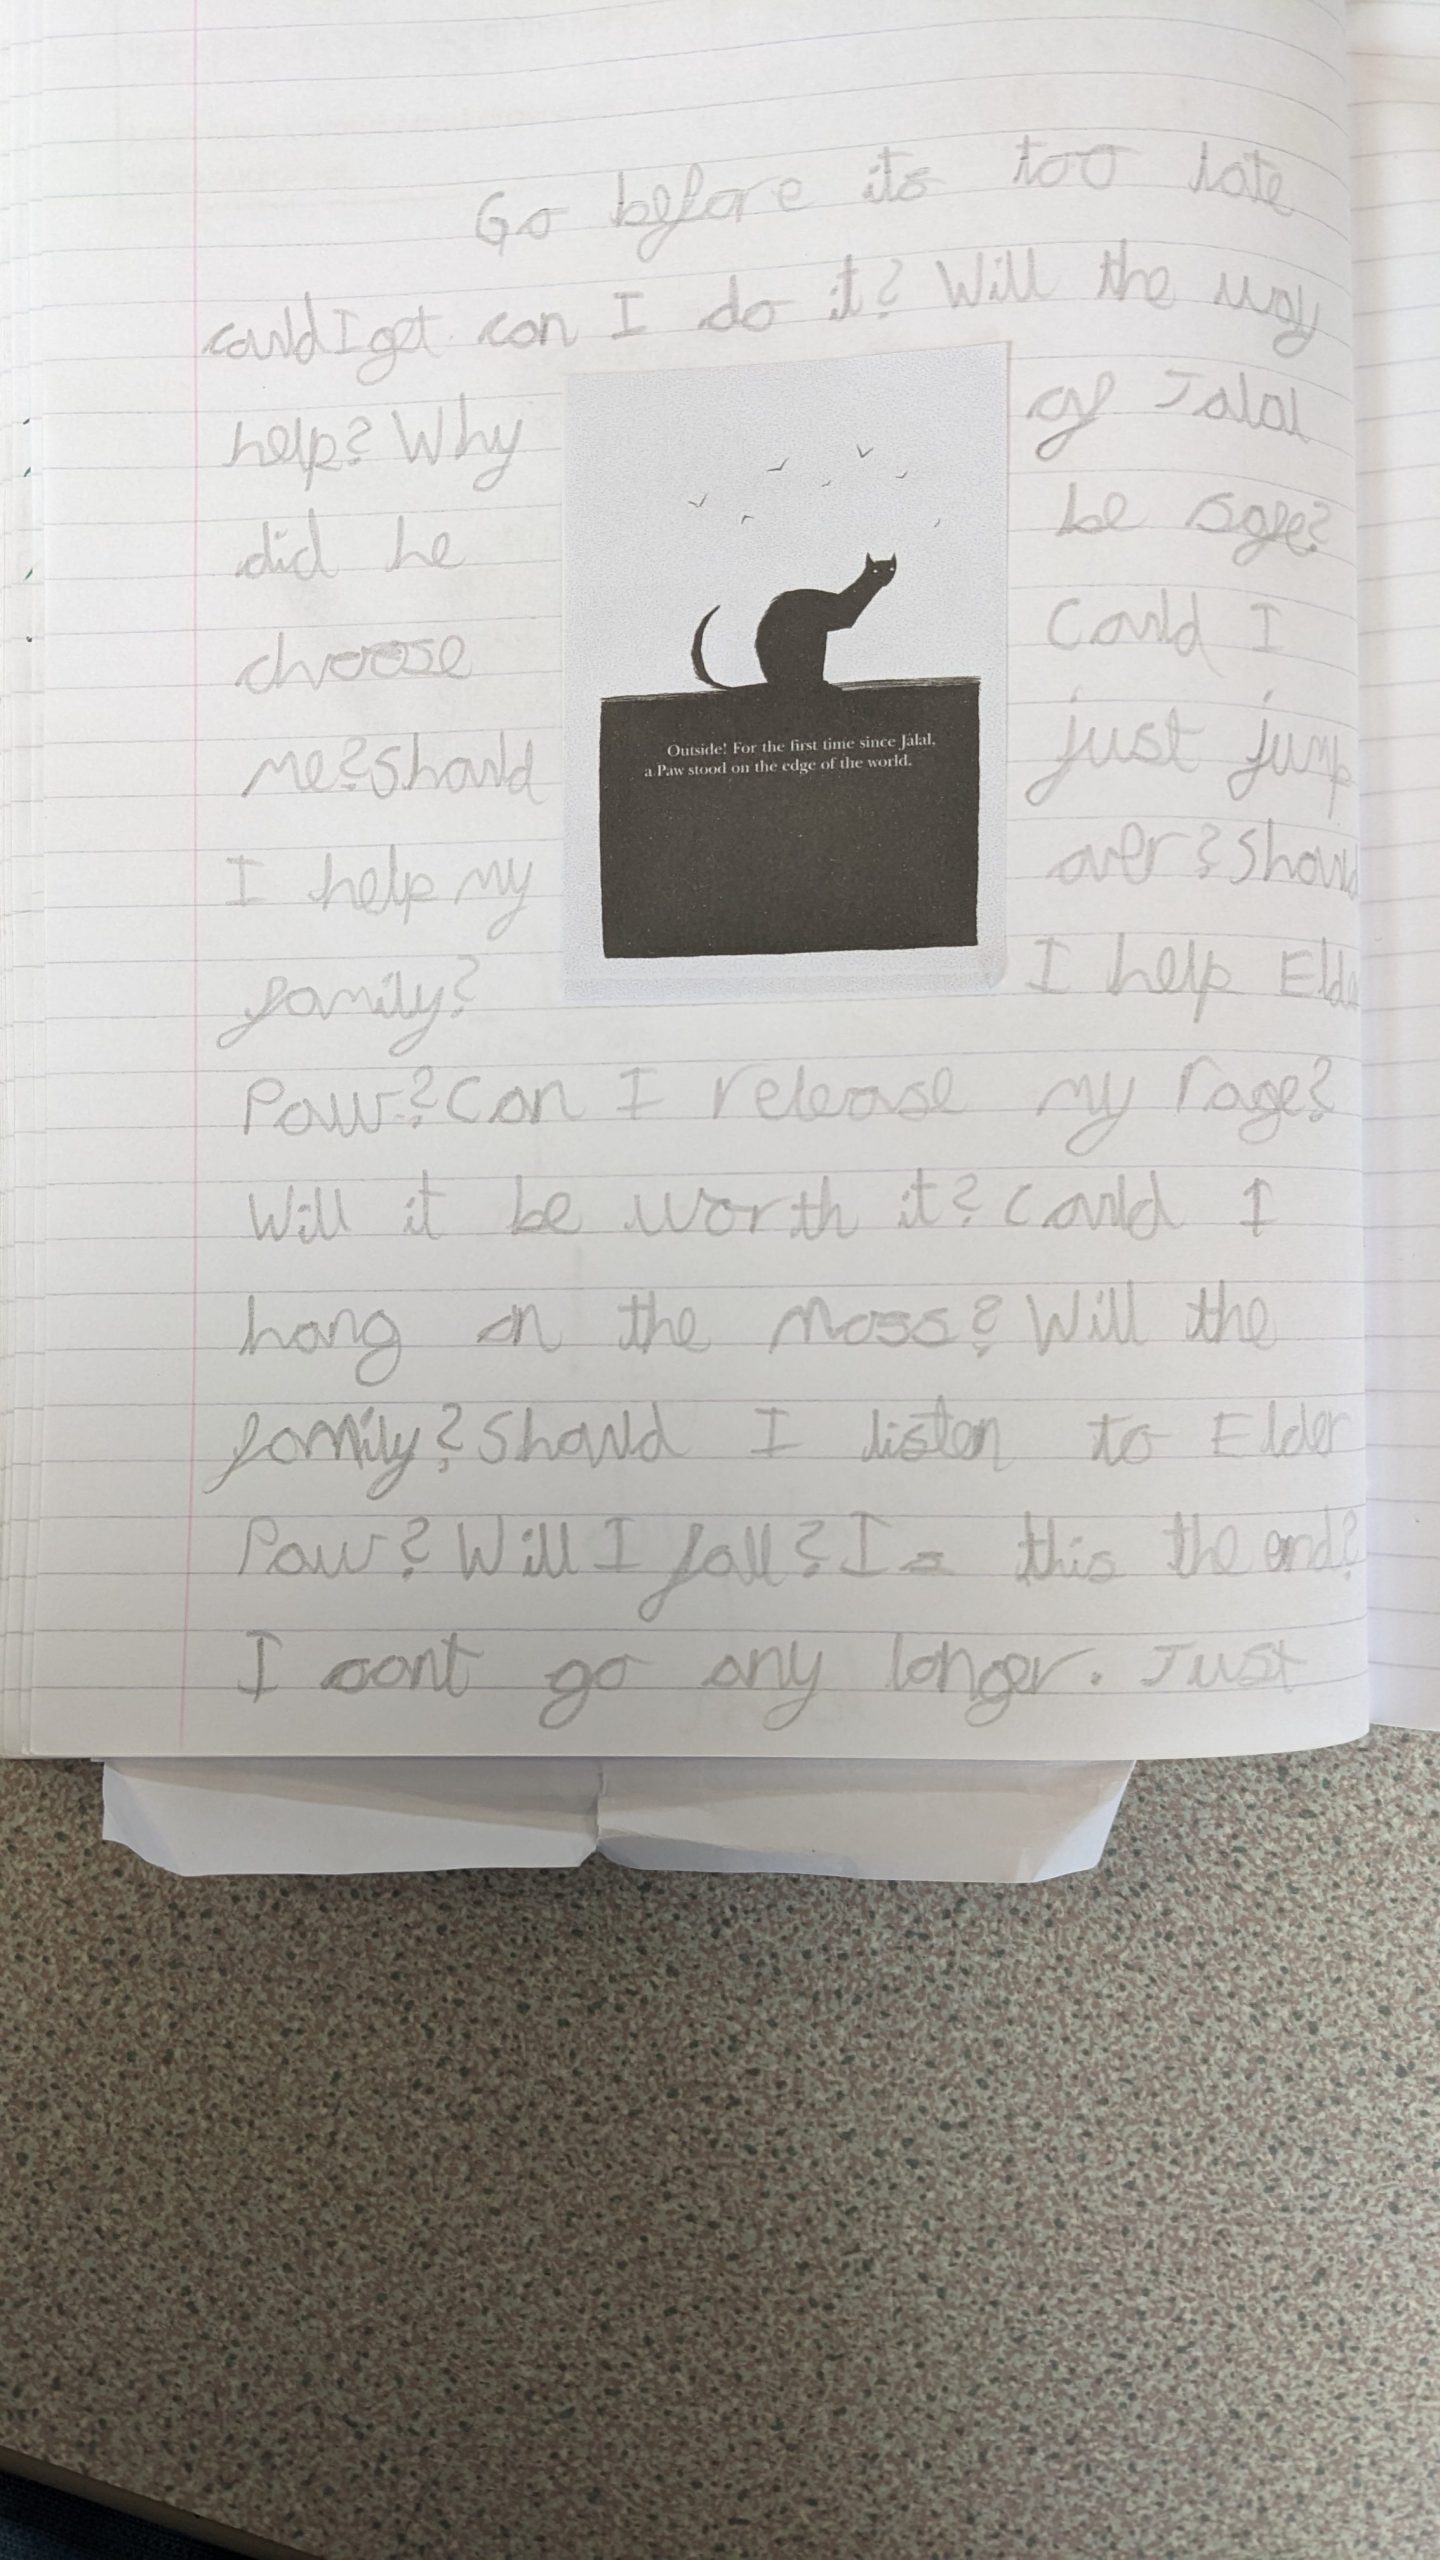 Go before its too late
could I get can I do it? Will the way
help? Why
of Jalal
did he
be safe?
choose
Could I
me? Should
just jump
I help my
over? Should
family?
I help Elder
Outside! For the first time since Jalal,
a Paw stood on the edge of the world.
Paw? Can I release my rage?
Will it be worth it? Could I
hang on the moss? Will the
family? Should I listen to Elder
Paw? Will I fall? Is this the end?
I cant go any longer. Just